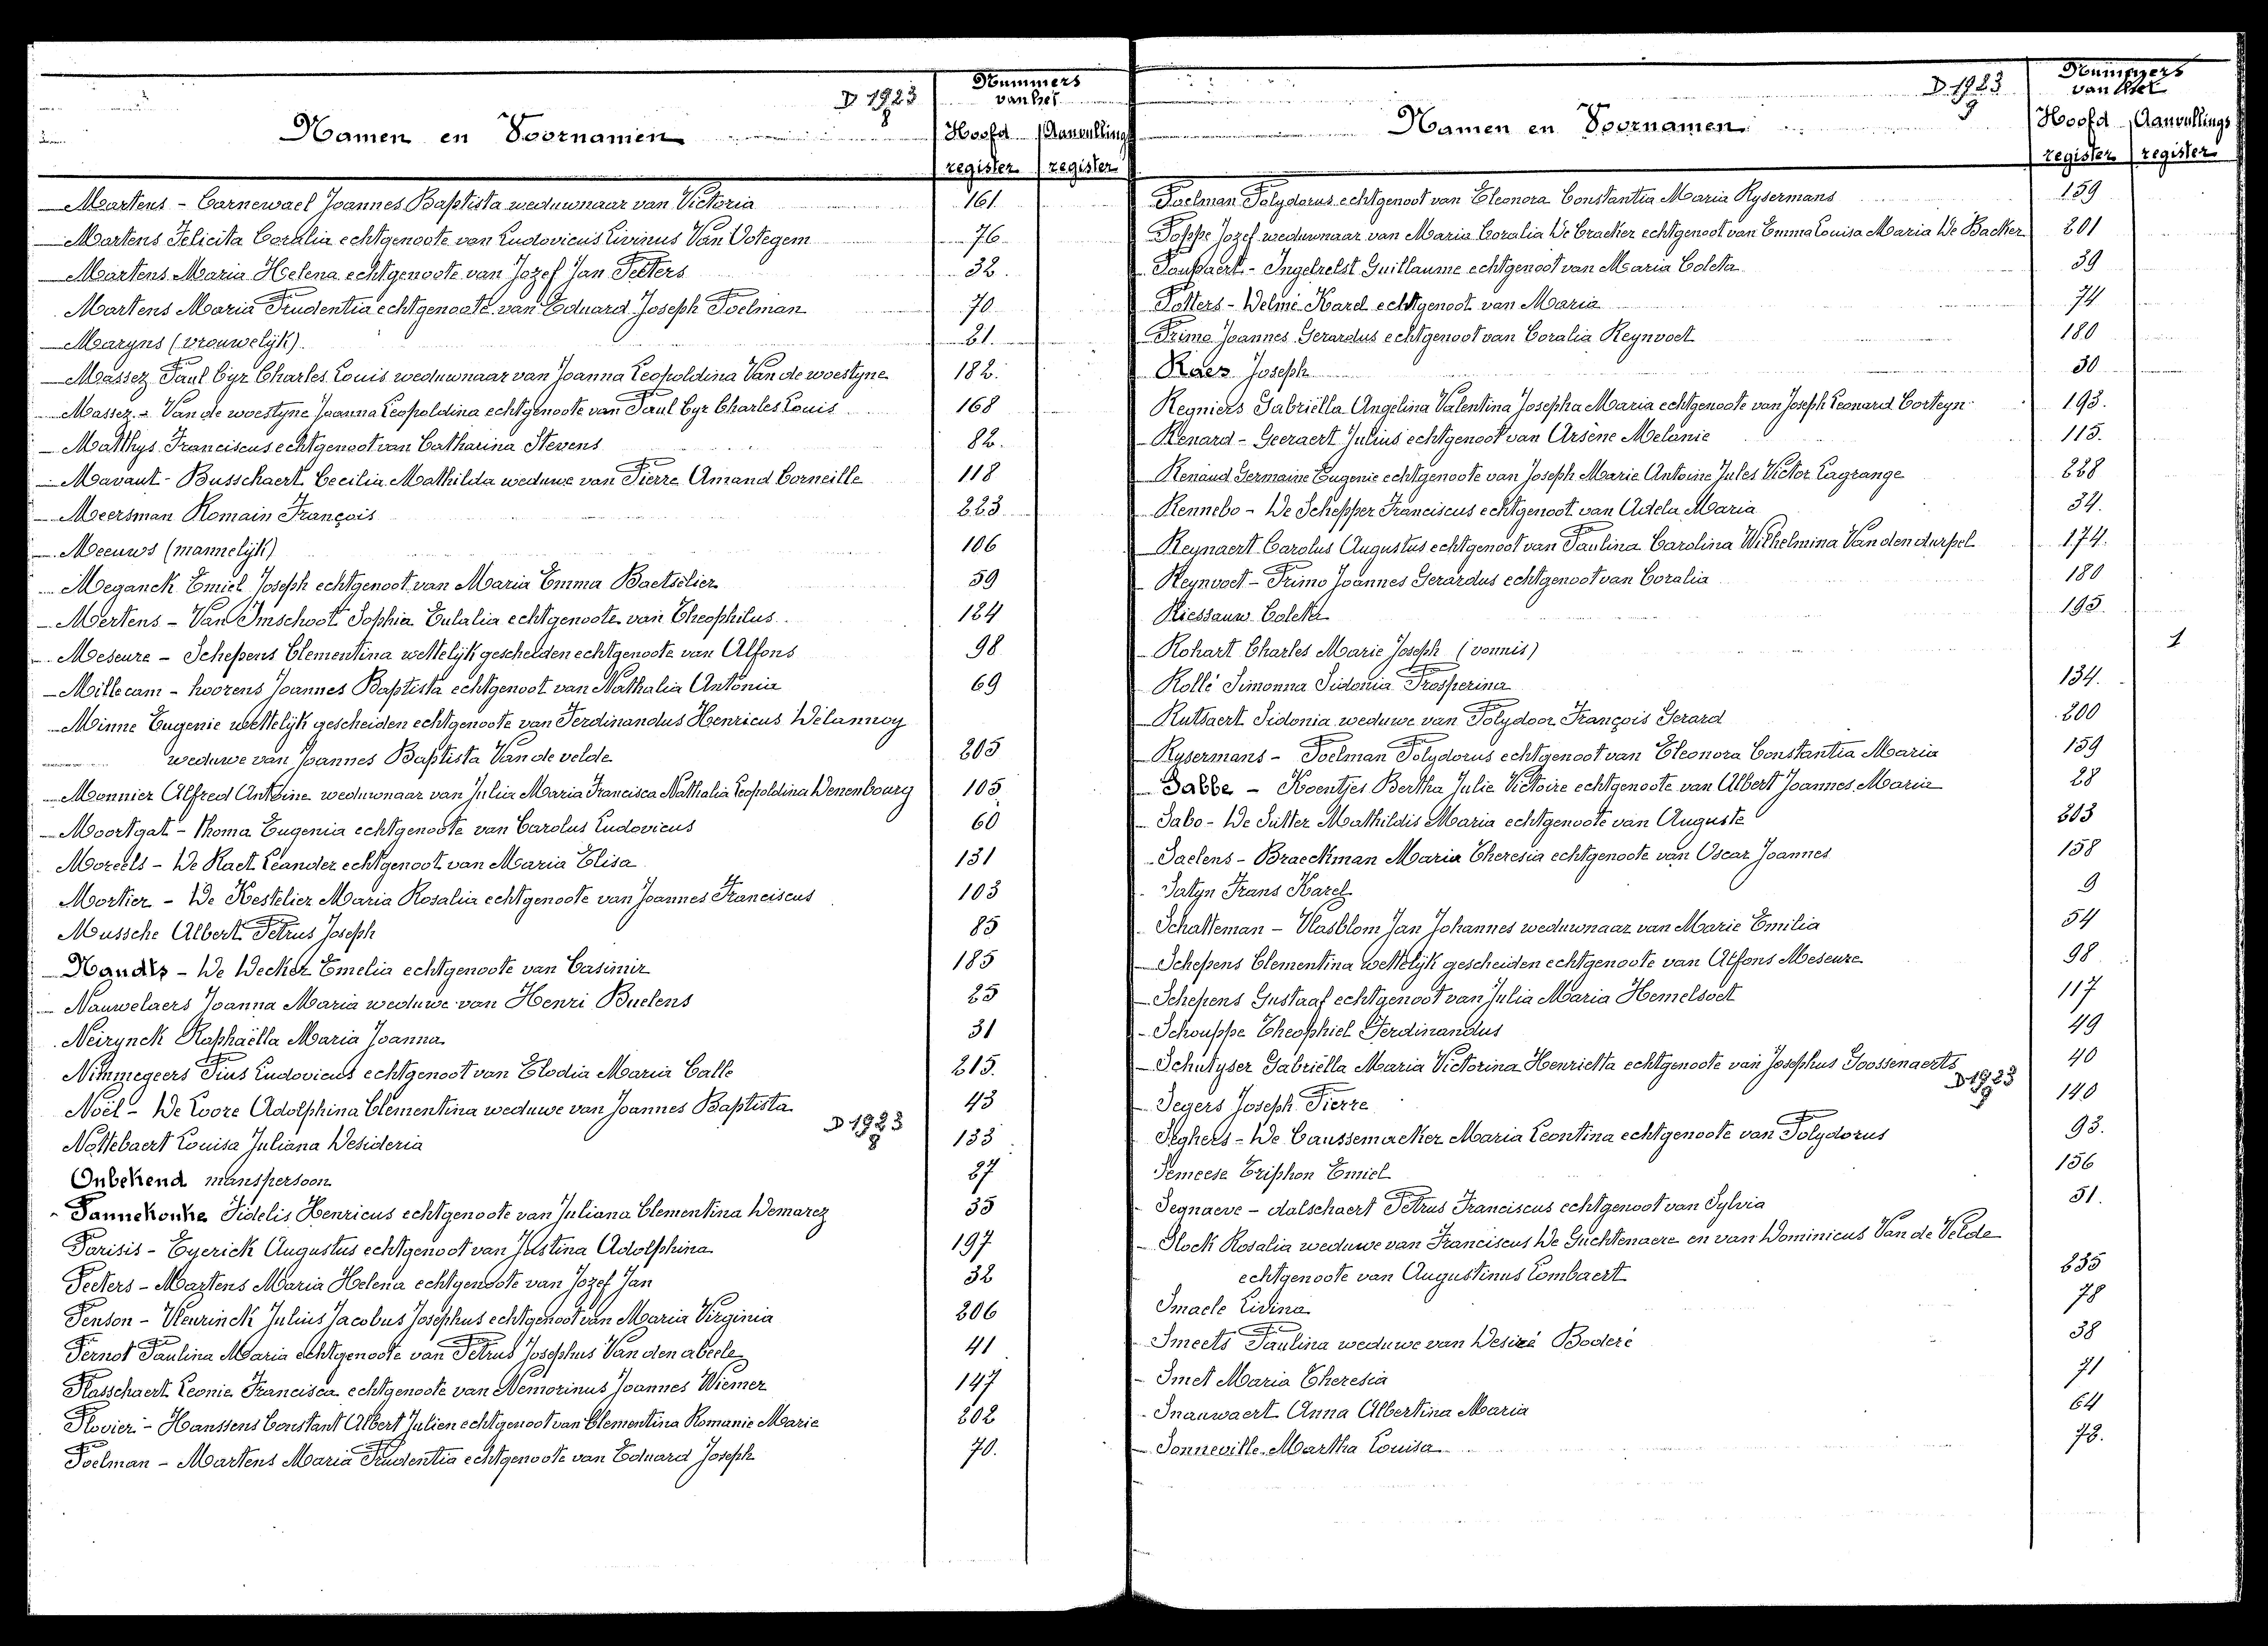 D 1923
8
Nummers
van het
Namen en Voornamen
Hoofd Aanvullings
register register
Martens - Carnewael Joannes Baptista weduwnaar van Victoria 161.
Martens Felicita Coralia echtgenoote van Ludovicus Livinus Van Votegem 76
Martens Maria Helena echtgenoote van Jozef Jan Peeters 32.
Martens Maria Prudentia echtgenoote van Eduard Joseph Poelman 70
Maryns (vrouwelijk) 21.
Massez Paul Cyr Charles Louis weduwnaar van Joanna Leopoldina Van de woestyne 182.
Massez - Van de woestyne Joanna Leopoldina echtgenoote van Paul Cyr Charles Louis 168
Matthys Franciscus echtgenoot van Catharina Stevens 82.
Mavaut - Busschaert Cecilia Mathilda weduwe van Pierre Amand Corneille 118
Meersman Romain François 223
Meeuws (mannelijk) 106
Meganck Emiel Joseph echtgenoot van Maria Emma Baetselier 59
Mertens - Van Imschoot Sophia Eulalia echtgenoote van Theophilus 124
Meseure - Schepens Clementina wettelijk gescheiden echtgenoote van Alfons 98
Millecam - hoorens Joannes Baptista echtgenoot van Nathalia Antonia 69
Minne Eugenie wettelijk gescheiden echtgenoote van Ferdinandus Henricus Delannoy
weduwe van Joannes Baptista Van de velde 205
Monnier Alfred Antoine weduwnaar van Julia Maria Francisca Nathalia Leopoldina Denenbourg 105
Moortgat - Thoma Eugenia echtgenoote van Carolus Ludovicus 60
Moreels - De Raet Leander echtgenoot van Maria Elisa 131
Mortier - De Kestelier Maria Rosalia echtgenoote van Joannes Franciscus 103
Mussche Albert Petrus Joseph 85
Naudts - De Decker Emelia echtgenoote van Casimir 185
Nauwelaers Joanna Maria weduwe van Henri Buelens 25
Neirynck Raphaëlla Maria Joanna 31
Nimmegeers Pius Ludovicus echtgenoot van Elodia Maria Calle 215.
Noël - De Loore Adolphina Clementina weduwe van Joannes Baptista 43
D 1923
8
Nottebaert Louisa Juliana Desideria 133
Onbekend manspersoon 27
Pannekouke Fidelis Henricus echtgenoote van Juliana Clementina Demarez 35
Parisis - Eyerick Augustus echtgenoot van Justina Adolphina 197
Peeters - Martens Maria Helena echtgenoote van Jozef Jan 32
Penson - Vleurinck Julius Jacobus Josephus echtgenoot van Maria Virginia 206
Pernot Paulina Maria echtgenoote van Petrus Josephus Van den abeele 41
Plasschaert Leonie Francisca echtgenoote van Nemorinus Joannes Wiemer 147
Plovier - Hanssens Constant Albert Julien echtgenoot van Clementina Romanie Marie 202
Poelman - Martens Maria Prudentia echtgenoote van Eduard Joseph 70.
D 1923
9
Nummers
van het
Namen en Voornamen
Hoofd Aanvullings
register register
Poelman Polydorus echtgenoot van Eleonora Constantia Maria Rysermans 159
Poppe Jozef weduwnaar van Maria Coralia De Cracker echtgenoot van Emma Louisa Maria De Backer 201
Poupaert - Ingelrelst Guillaume echtgenoot van Maria Coleta 39
Potters - Delmé Karel echtgenoot van Maria 74
Primo Joannes Gerardus echtgenoot van Coralia Reynvoet 180
Raes Joseph 30
Regniers Gabriëlla Angelina Valentina Josepha Maria echtgenoote van Joseph Leonard Corteyn 193.
Renard - Geeraert Julius echtgenoot van Arsène Melanie 115.
Renaud Germaine Eugenie echtgenoote van Joseph Marie Antoine Jules Victor Lagrange 228
Rennebo - De Schepper Franciscus echtgenoot van Adela Maria 34.
Reynaert Carolus Augustus echtgenoot van Paulina Carolina Wilhelmina Van den durpel 174.
Reynvoet - Primo Joannes Gerardus echtgenoot van Coralia 180
Riessauw Coleta 195.
Rohart Charles Marie Joseph (vonnis) 1
Rollé Simonna Sidonia Prosperina 134.
Rutsaert Sidonia weduwe van Polydoor François Gerard 200
Rysermans - Poelman Polydorus echtgenoot van Eleonora Constantia Maria 159
Sabbe - Koentjes Bertha Julie Victoire echtgenoote van Albert Joannes Maria 28
Sabo - De Sutter Mathildis Maria echtgenoote van Auguste 203
Saelens - Braeckman Maria Theresia echtgenoote van Oscar Joannes 158
Satyn Frans Karel 9
Schatteman - Vlasblom Jan Johannes weduwnaar van Marie Emilia 54
Schepens Clementina wettelijk gescheiden echtgenoote van Alfons Meseure 98
Schepens Gustaaf echtgenoot van Julia Maria Hemelsoet 117
Schouppe Theophiel Ferdinandus 49
Schutyser Gabriëlla Maria Victorina Henrietta echtgenoote van Josephus Goossenaerts 40
D 1923
9
Segers Joseph Pierre 140
Seghers - De Caussemaeker Maria Leontina echtgenoote van Polydorus 93.
Semeese Triphon Emiel 156
Segnaeve - dalschaert Petrus Franciscus echtgenoot van Sylvia 51.
Slock Rosalia weduwe van Franciscus De Guchtenaere en van Dominicus Van de Velde
echtgenoote van Augustinus Lombaert 235
Smaele Livina 78
Smeets Paulina weduwe van Desiré Boderé 38
Smet Maria Theresia 71
Snauwaert Anna Albertina Maria 64
Sonneville Martha Louisa 73.